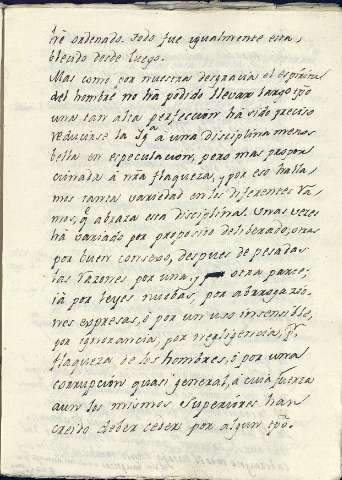 hè ordenado. Todo fue igualmente esta
blecido desde luego.
Mas como por nuestra desgracia el espiritu
del hombre no hà podido llevar largo tpõ
una tan alta perfeccion hà sido preciso
reducirse la Ygª a una disciplina menos
bella en especulacion, pero mas propor
cionada à nrã flaqueza, y por eso halla
mos tanta variedad en los diferentes ra
mos, q̃ abraza esta disciplina. Unas veces
hà variado por proposito deliberado, otras
por buen consejo, despues de pesadas
las razones por una, y otra parte;
ià por leyes nuebas, por abrogacio
nes expresas, ò por un uso insensible,
por ignorancia, por negligencia, pr
flaqueza de los hombres, ò por una
corrupcion quasi general, à cuia fuerza
aun los mismos Superiores han
creido deber ceder por algun tpõ.